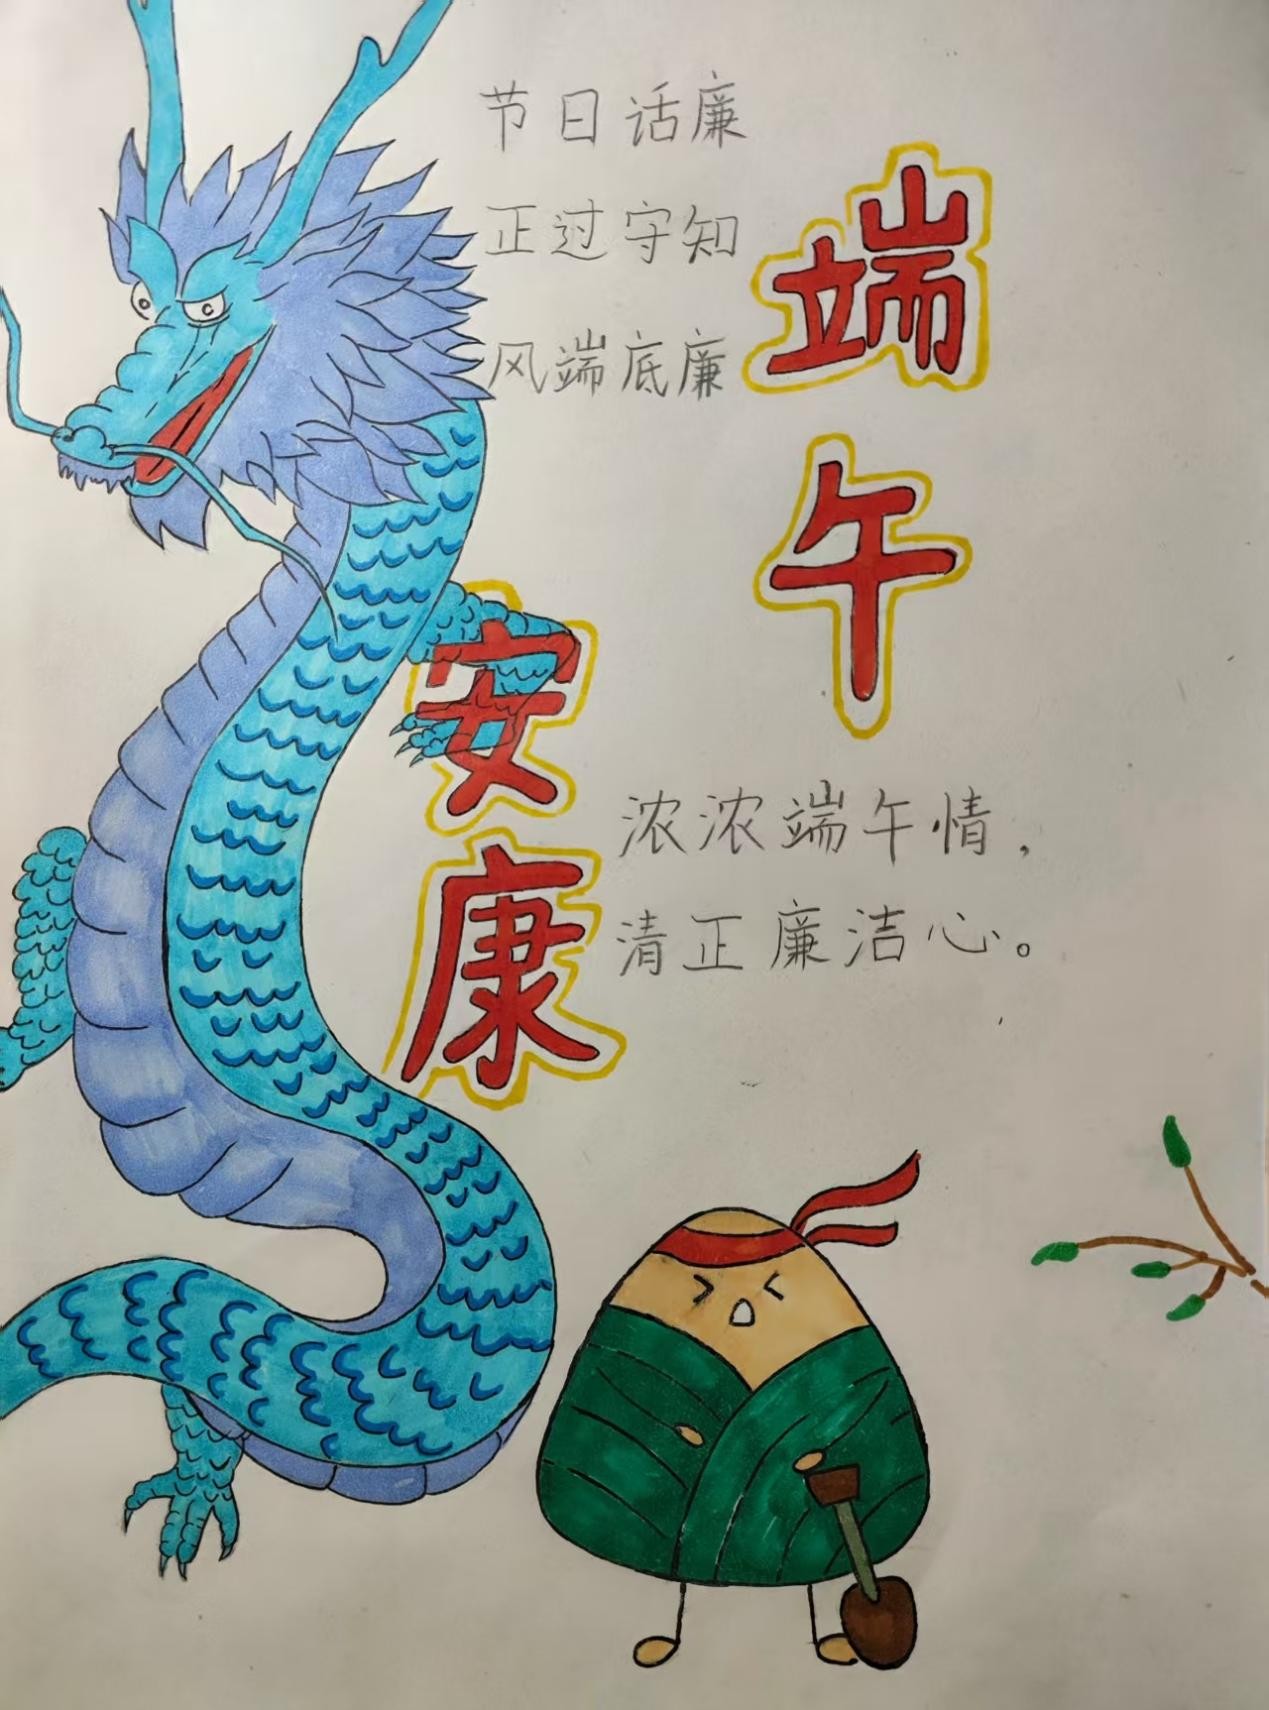 节日话廉
正过守知
风端底廉
端午
安康
浓浓端午情，
清正廉洁心。